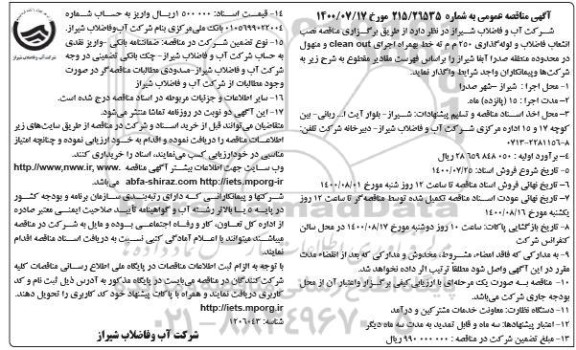 آگهی مناقصه عمومی به شماره ۲۱۵/۲۶۵۳۵ مورخ ۱۴۰۰/۰۷/۱۷
شرکت آب و فاضلاب شیراز در نظر دارد از طریق برگزاری مناقصه نصب
انشعاب فاضلاب و لوله‌گذاری ۲۵۰ م م ته خط بهمراه اجرای clean out و منهول
در محدوده منطقه صدرا آبفا شیراز را براساس فهرست مقادیر مطروح به شرح زیر به
شرکت‌ها وپیمانکاران واجد شرایط واگذار نماید.
۱- محل اجرا : شیراز -شهر صدرا
۲- مدت اجرا : ۱۵ (پانزده) ماه.
۳- محل اخذ اسناد مناقصه و تسلیم پیشنهادات: شیراز- بلوار آیت ا... ربانی- بین
کوچه ۱۷ و ۱۵ اداره مرکزی شرکت آب و فاضلاب شیراز- دبیرخانه شرکت تلفن:
۰۷۱۳-۲۲۸۱۱۵۶-۸
۴- برآورد اولیه : ۲۸ ۶۵۹ ۸۴۸ ۰۵۰ ریال
۵- تاریخ شروع فروش اسناد: ۱۴۰۰/۰۷/۲۵
۶- تاریخ نهائی فروش اسناد مناقصه تا ساعت ۱۲ روز شنبه مورخ ۱۴۰۰/۰۸/۰۱
۷- تاریخ نهائی عودت اسناد مناقصه تکمیل شده توسط مناقصه‌گر تا ساعت ۱۲ روز
یکشنبه مورخ ۱۴۰۰/۰۸/۱۶
۸- تاریخ بازگشایی پاکات: ساعت ۱۰ روز دوشنبه مورخ ۱۴۰۰/۰۸/۱۷ در محل سالن
کنفرانس شرکت
۹- به مدارکی که فاقد امضاء، مشروط، مخدوش و مدارکی که بعد از انقضاء مدت
مقرر در این آگهی واصل شود مطلقا ترتیب اثر داده نخواهد شد.
۱۰- مناقصه به صورت یک مرحله‌ای با ارزیابی کیفی برگزار واعتبار آن از محل
بودجه جاری شرکت می‌باشد.
۱۱- دستگاه نظارت: معاونت خدمات مشترکین و درآمد
۱۲- اعتبار پیشنهادها: سه ماه و قابل تمدید به مدت سه ماه دیگر
۱۳- مبلغ تضمین شرکت در مناقصه : ۹۹۰ ۰۰۰ ۰۰۰ ریال
۱۴- قیمت اسناد: ۵۰۰ ۰۰۰ ۱ریال واریز به حساب شماره
۰۱۰۵۶۹۹۰۲۲۰۰۴ بانک ملی‌مرکزی بنام شرکت آب‌وفاضلاب شیراز.
۱۵- نوع تضمین شرکت در مناقصه: ضمانتنامه بانکی -واریز نقدی
به حساب شرکت آب و فاضلاب شیراز- چک بانکی تضمینی در وجه
شرکت آب و فاضلاب شیراز-مسدودی مطالبات مناقصه‌گر در صورت
وجود مطالبات از شرکت آب و فاضلاب شیراز
۱۶- سایر اطلاعات و جزئیات مربوطه در اسناد مناقصه درج شده است.
۱۷- این آگهی دو نوبت در روزنامه تماشا منتشر می‌شود.
متقاضیان می‌توانند قبل از خرید اسناد و شرکت در مناقصه از طریق سایت‌های زیر
اطلاعات مناقصه را دریافت نموده و اقدام به خود ارزیابی نموده و چنانچه امتیاز
مناسبی در خودارزیابی کسب می‌نمایند، اسناد را خریداری کنند.
وب سایت جهت اطلاعات بیشتر آگهی مناقصه http://www.nww.ir, www.
abfa-shiraz.com http://iets.mporg-ir می‌باشد.
شرکتها و پیمانکارانی که دارای رتبه‌بندی سازمان برنامه و بودجه کشور
در پایه ۵ یا بالاتر رشته آب و گواهینامه تأیید صلاحیت ایمنی معتبر صادره
از اداره کل تعاون، کار و رفاه اجتماعی بوده و مایل به شرکت در مناقصه
میباشند میتوانند با اعلام آمادگی کتبی نسبت به دریافت اسناد مناقصه اقدام
نمایند.
با توجه به الزام ثبت اطلاعات مناقصات در پایگاه ملی اطلاع رسانی مناقصات کلیه
شرکت‌کنندگان در مناقصه می‌بایست در پایگاه مذکور به آدرس ذیل ثبت نام و کد
کاربری دریافت نمایند و همراه با پاکات پیشنهاد خود کد کاربری را تحویل دهند.
http://iets.mporg-ir
شناسه: ۱۲۰۶۰۴۳
شرکت آب وفاضلاب شیراز